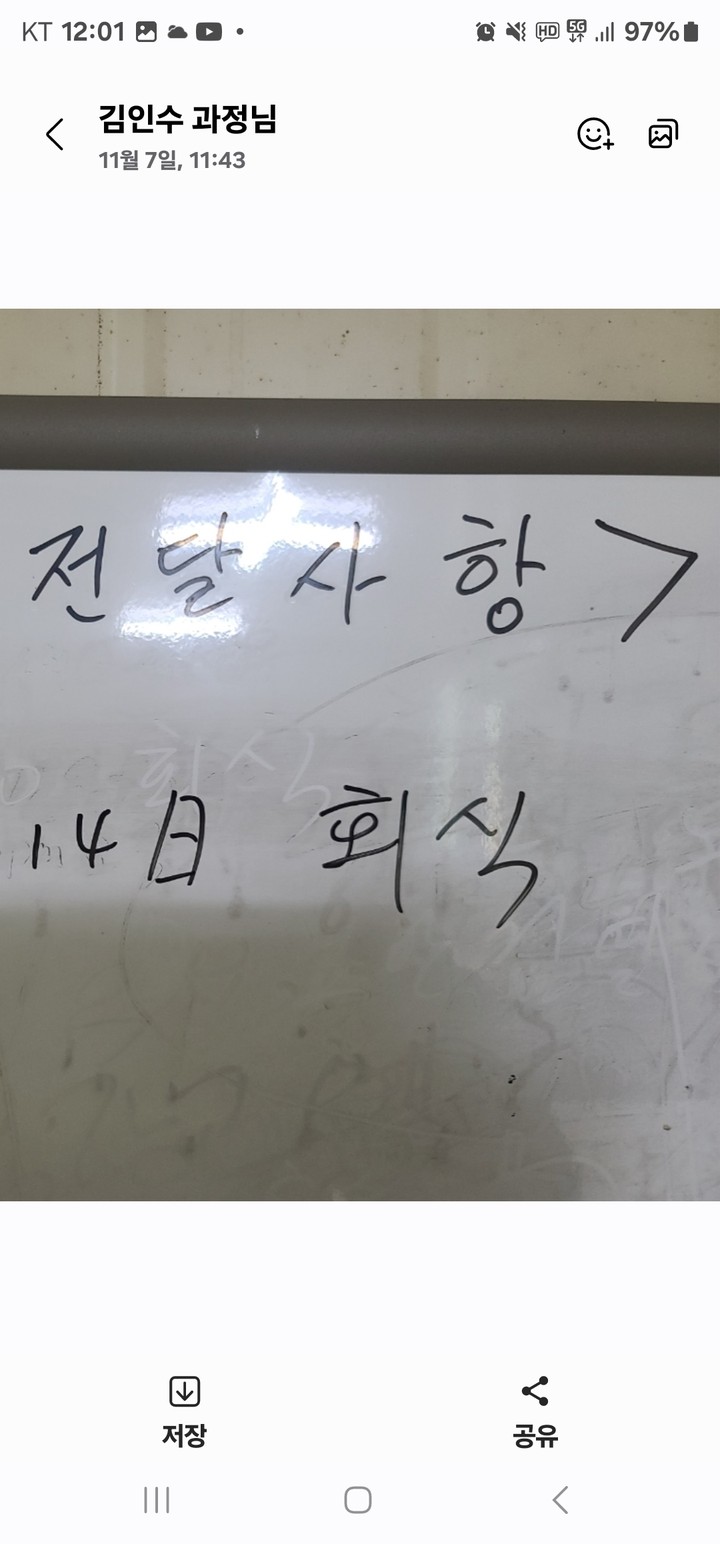 KT 12:01 HD 5G 97%
김인수 과정님
11월 7일, 11:43
전달사항>
14日 회식
회식
저장 공유